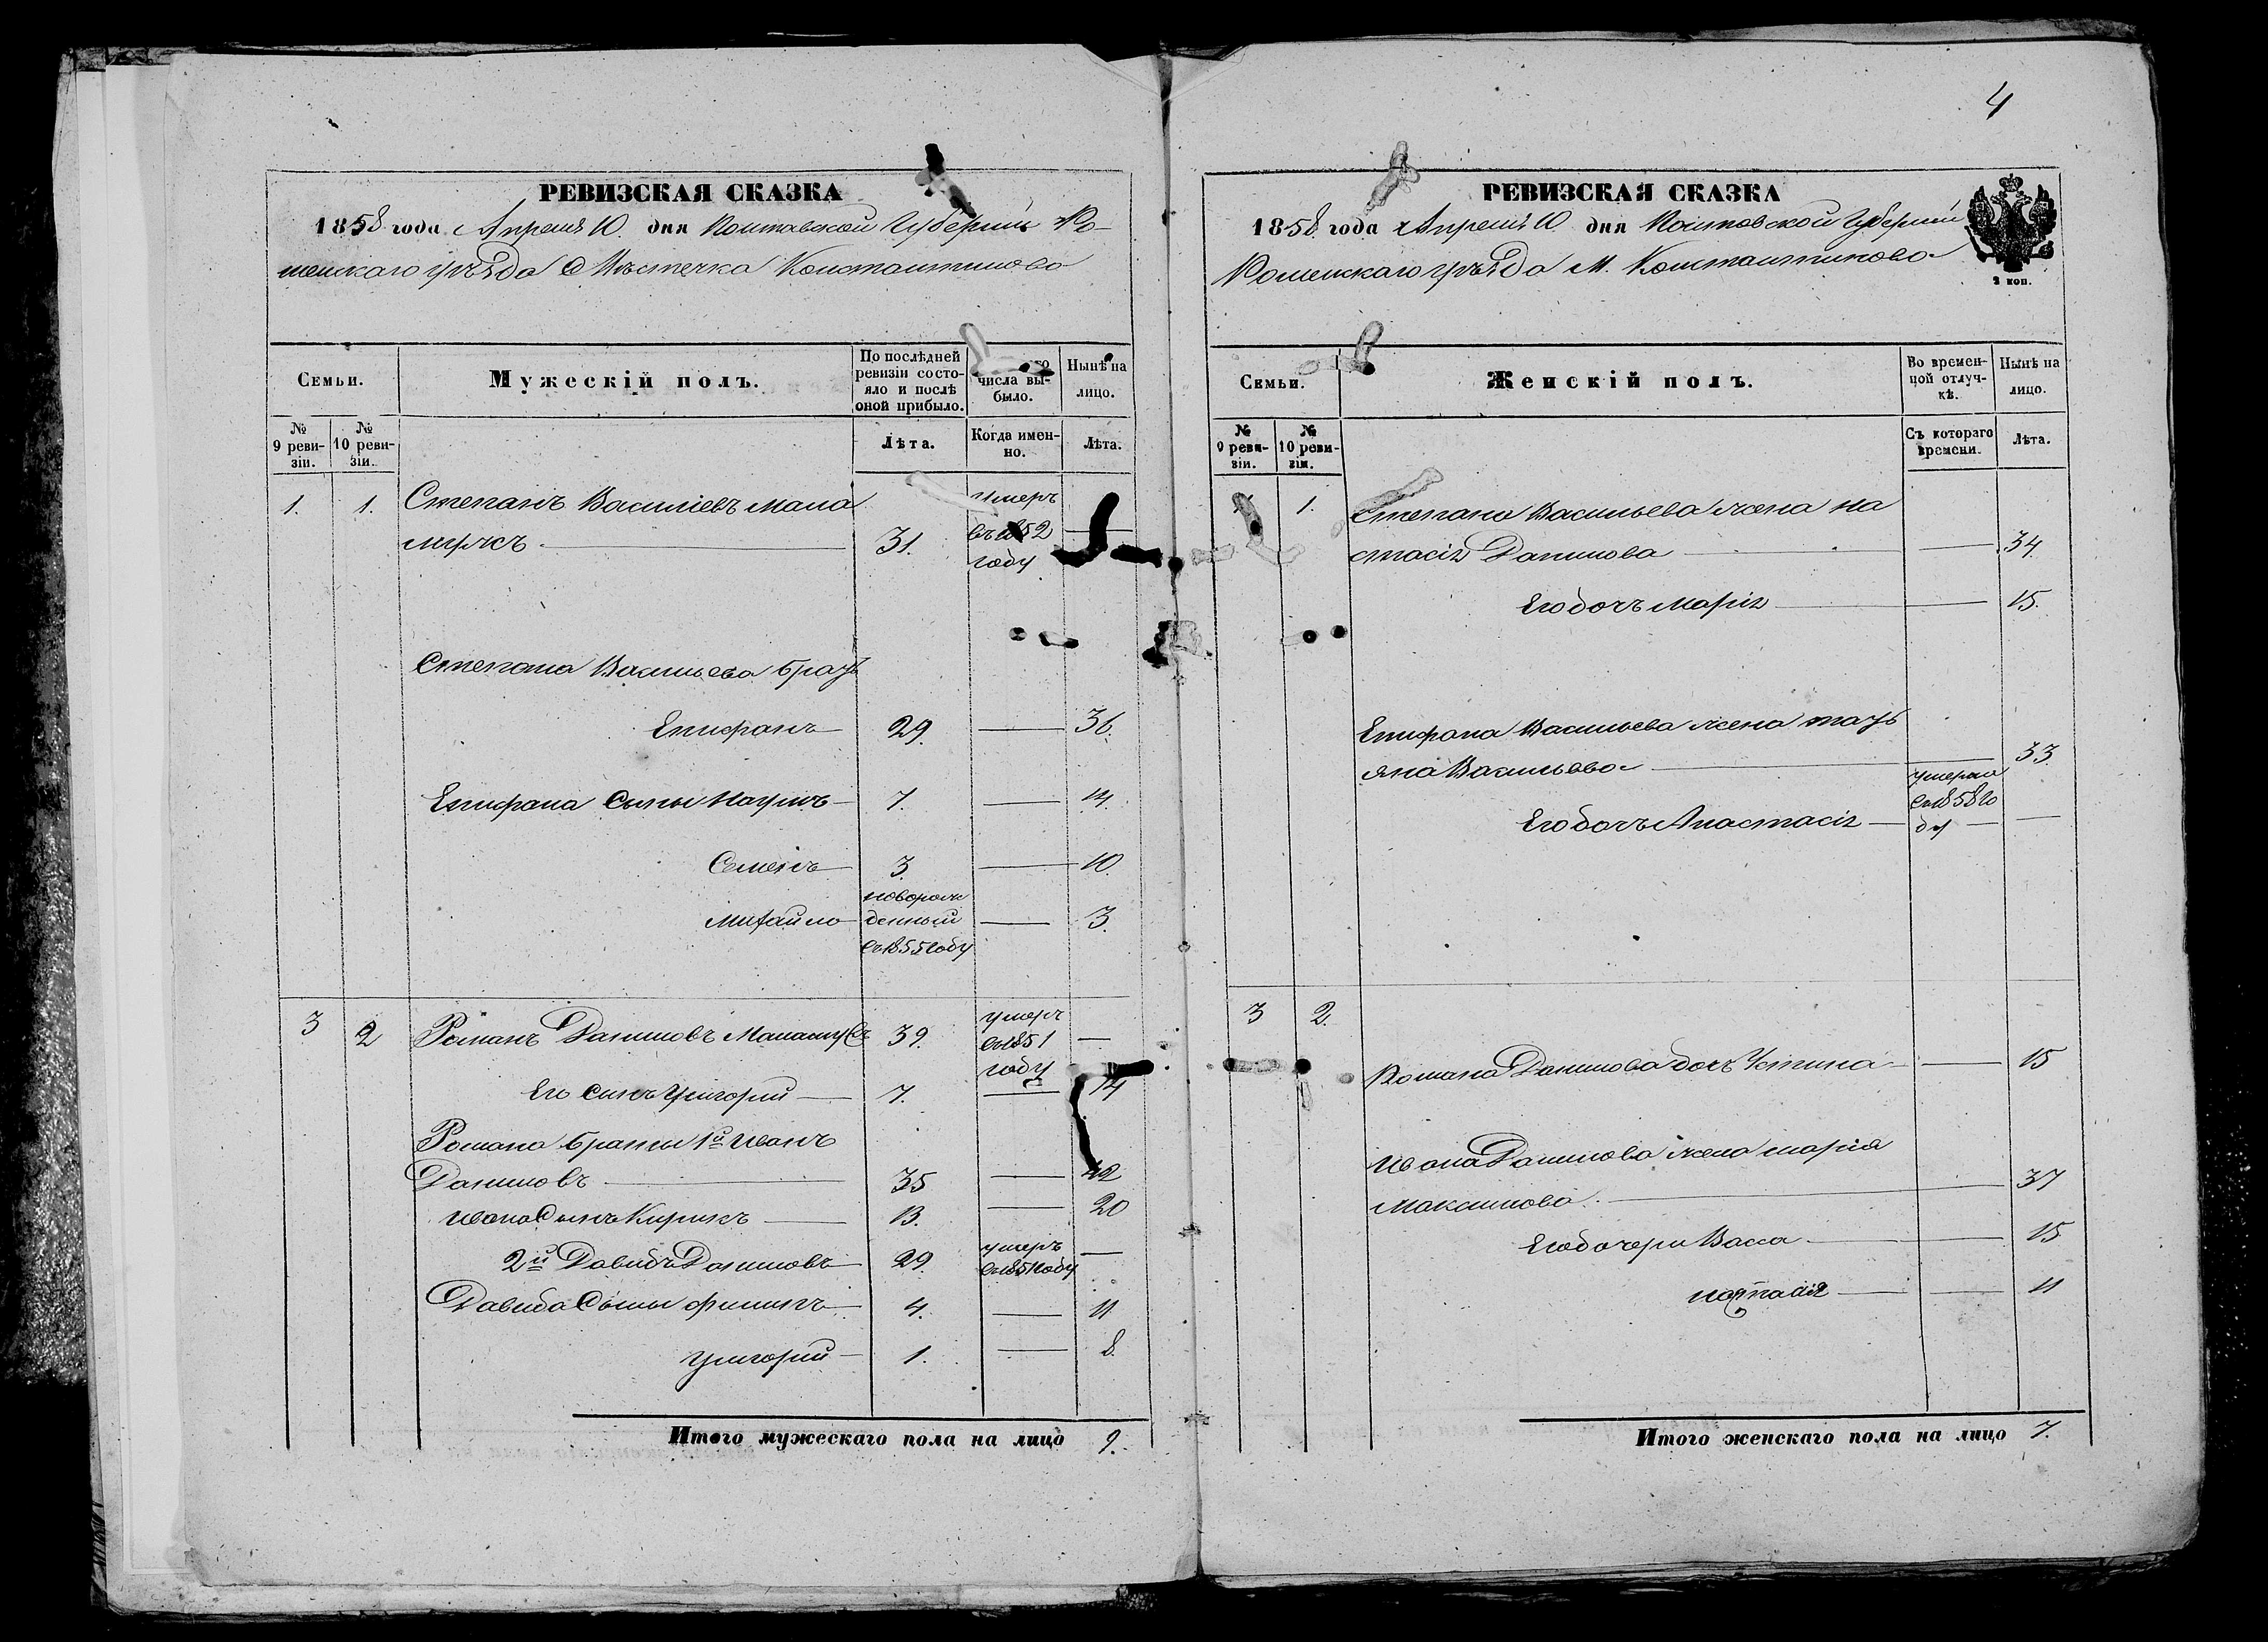 4
РЕВИЗСКАЯ СКАЗКА
1858 года Апреля 10 дня Полтавской Губерніи Ро-
менскаго уѣзда Мѣстечка Константинова
Семьи.
Мужескій полъ.
По послѣдней ревизіи состояло и послѣ оной прибыло.
числа вы-
было.
Нынѣ на лицо.
№ 9 реви-зіи.
№ 10 реви-зіи.
Лѣта.
Когда имен-но.
Лѣта.
1. 1. Степанъ Василіевъ мала
31. умеръ въ 1852 году —
Степана Васильева братъ
Епифанъ 29. — 36.
Епифана Сыны Наумъ 7. — 14.
Семенъ 3. — 10.
Михайло новорож денный въ 1855 году — 3.
3 2 Романъ Даниловъ 39. умеръ въ 1851 году —
Его Сынъ Григорій 7. — 14
Романа братья 1й Иванъ
Даниловъ 35 — 42
Ивана Сынъ Кирикъ 13. — 20
2й Давидъ Даниловъ 29. умеръ въ 1851 году —
Давида Сыны Филипъ 4. — 11
Григорій 1. — 8.
Итого мужескаго пола на лицо 9.
РЕВИЗСКАЯ СКАЗКА
1858 года Апреля 10 дня Полтавской Губерніи
Роменскаго уѣзда М. Константинова
2 коп.
Семьи.
Женскій полъ.
Во времен-ной отлуч-кѣ.
Нынѣ на лицо.
№ 9 реви-зіи.
№ 10 реви-зіи.
Съ котораго времени.
Лѣта.
1. Степана Васильева жена на
стасія Данилова — 34
Его дочь Марія — 15.
Епифана Васильева жена тать
яна Васильева — 33
Его дочь Анастасія умерла въ 1858 го ду —
3 2. Романа Данилова дочь Устина — 15
Ивана Данилова жена марія
Максимова — 37
Его дочери Васса — 15
11
Итого женскаго пола на лицо 7.